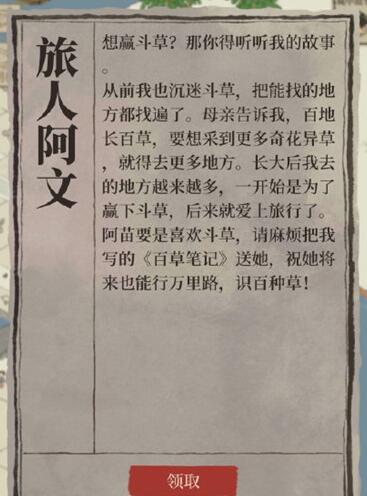 旅人阿文
想赢斗草？那你得听听我的故事
。
从前我也沉迷斗草，把能找的地
方都找遍了。母亲告诉我，百地
长百草，要想采到更多奇花异草
，就得去更多地方。长大后我去
的地方越来越多，一开始是为了
赢下斗草，后来就爱上旅行了。
阿苗要是喜欢斗草，请麻烦把我
写的《百草笔记》送她，祝她将
来也能行万里路，识百种草！
领取